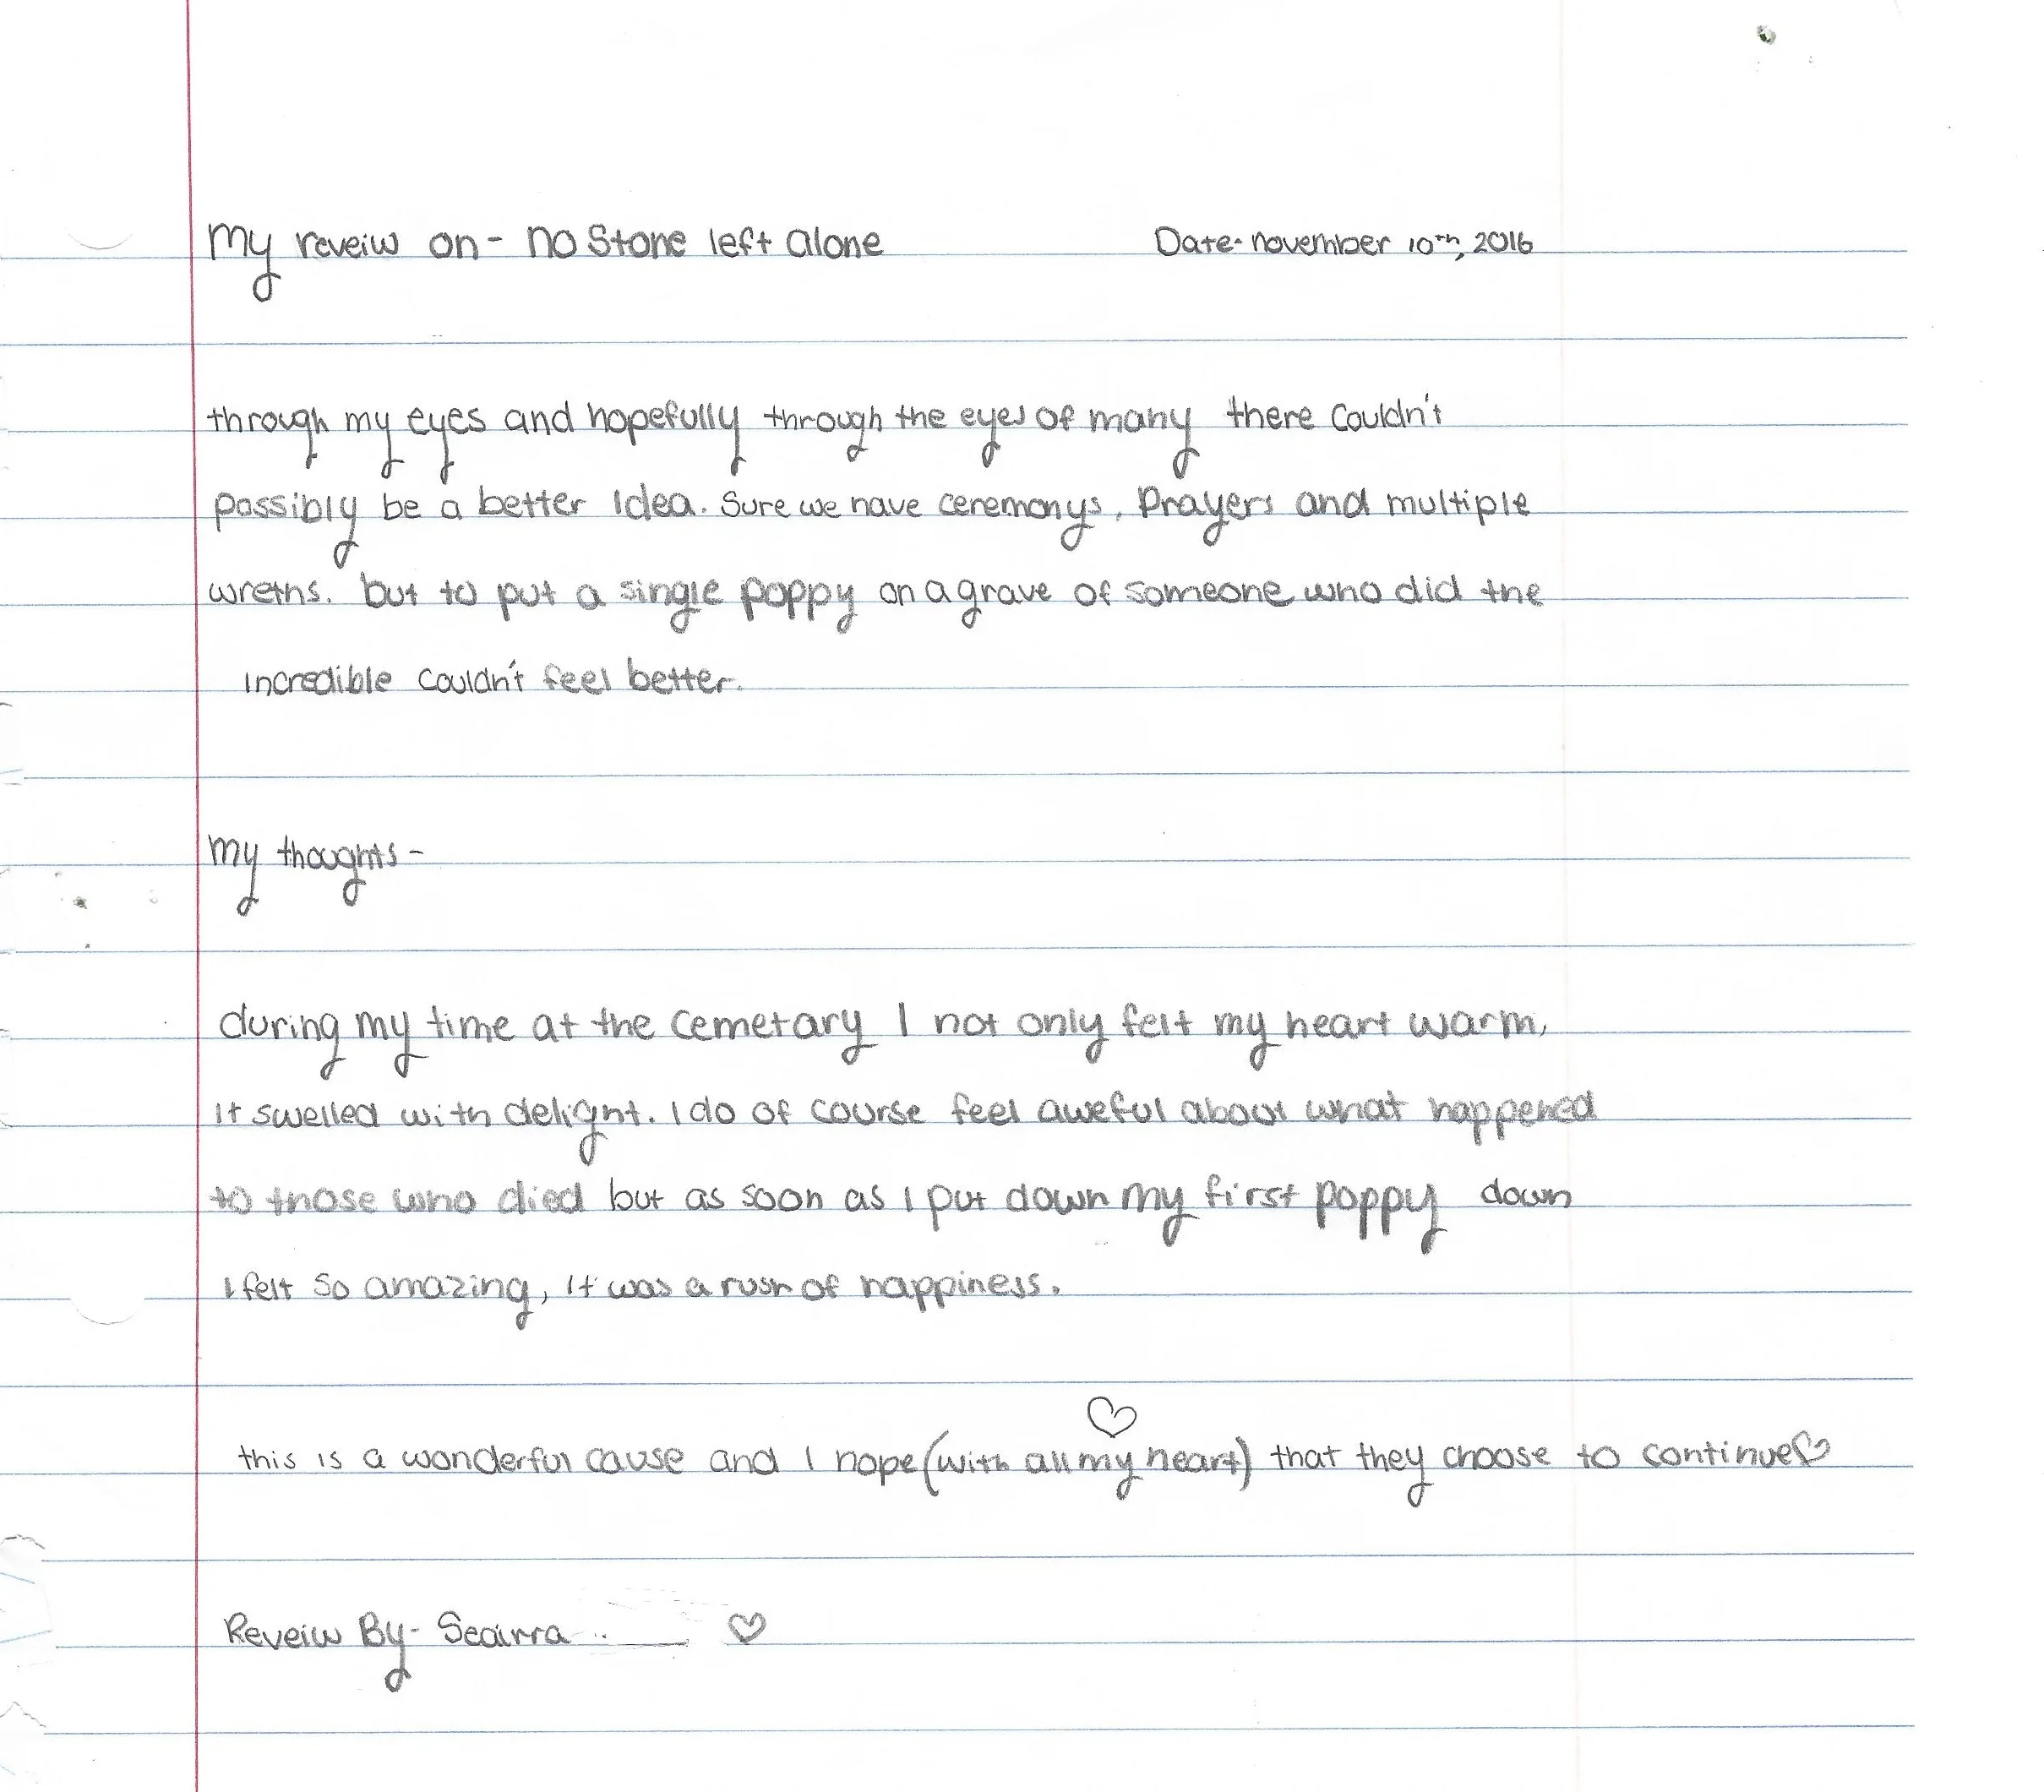 My reveiw on - No Stone left Alone    Date- november 10th, 2016
through my eyes and hopefully through the eyes of many there couldn't
possibly be a better Idea. Sure we have ceremonys, Prayers and multiple
wreths. but to put a single poppy on a grave of someone who did the
incredible couldn't feel better.
My thoughts -
during my time at the cemetary I not only felt my heart warm,
it swelled with delight. I do of course feel aweful about what happened
to those who died but as soon as I put down my first poppy down
I felt so amazing, it was a rush of happiness.
this is a wonderful cause and I hope (with all my heart) that they choose to continue♡
Reveiw By- Searra ♡